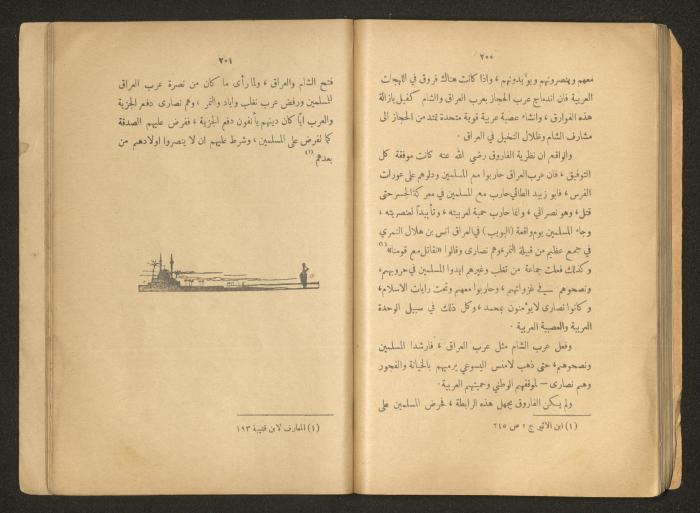 ٢٠٠
معهم وينصرونهم ويؤيدونهم ، واذا كانت هناك فروق في اللهجات
العربية فان اندماج عرب الحجاز بعرب العراق والشام كفيل بازالة
هذه الفوارق ، وانشاء عصبة عربية قوية متحدة تمتد من الحجاز الى
مشارف الشام وظلال النخيل في العراق .
والواقع ان نظرية الفاروق رضي الله عنه كانت موفقة كل
التوفيق ، فان عرب العراق حاربوا مع المسلمين ودلوهم على عورات
الفرس ، فابو زبيد الطائي حارب مع المسلمين في معركة الجسر حتى
قتل ، وهو نصراني ، وانما حارب حمية لعربيته ، وتأييداً لعنصريته ،
وجاء المسلمين يوم واقعة (البويب) في العراق انس بن هلال النمري
في جمع عظيم من قبيلة النمر ، وهم نصارى وقالوا «نقاتل مع قومنا» (١)
وكذلك فعلت جماعة من تغلب وغيرهم ايدوا المسلمين في حروبهم ،
ونصحوهم في غزواتهم ، وحاربوا معهم وتحت رايات الاسلام ،
وكانوا نصارى لا يؤمنون بمحمد ، وكل ذلك في سبيل الوحدة
العربية والعصبية العربية .
وفعل عرب الشام مثل عرب العراق ، فارشدا المسلمين
ونصحوهم ، حتى ذهب لامنس اليسوعي يرميهم بالخيانة والفجور
وهم نصارى — لموقفهم الوطني وحميتهم العربية .
ولم يكن الفاروق يجهل هذه الرابطة ، فحرض المسلمين على
(١) ابن الاثير ج ٢ ص ٢١٥
٢٠١
فتح الشام والعراق ، ولما رأى ما كان من نصرة عرب العراق
للمسلمين ورفض عرب تغلب واياد والنمر ، وهم نصارى دفع الجزية
والعرب ايّا كان دينهم يأنفون دفع الجزية ، ففرض عليهم الصدقة
كما تفرض على المسلمين ، وشرط عليهم ان لا ينصروا اولادهم من
بعدهم (١)
(١) المعارف لابن قتيبة ١٩٣